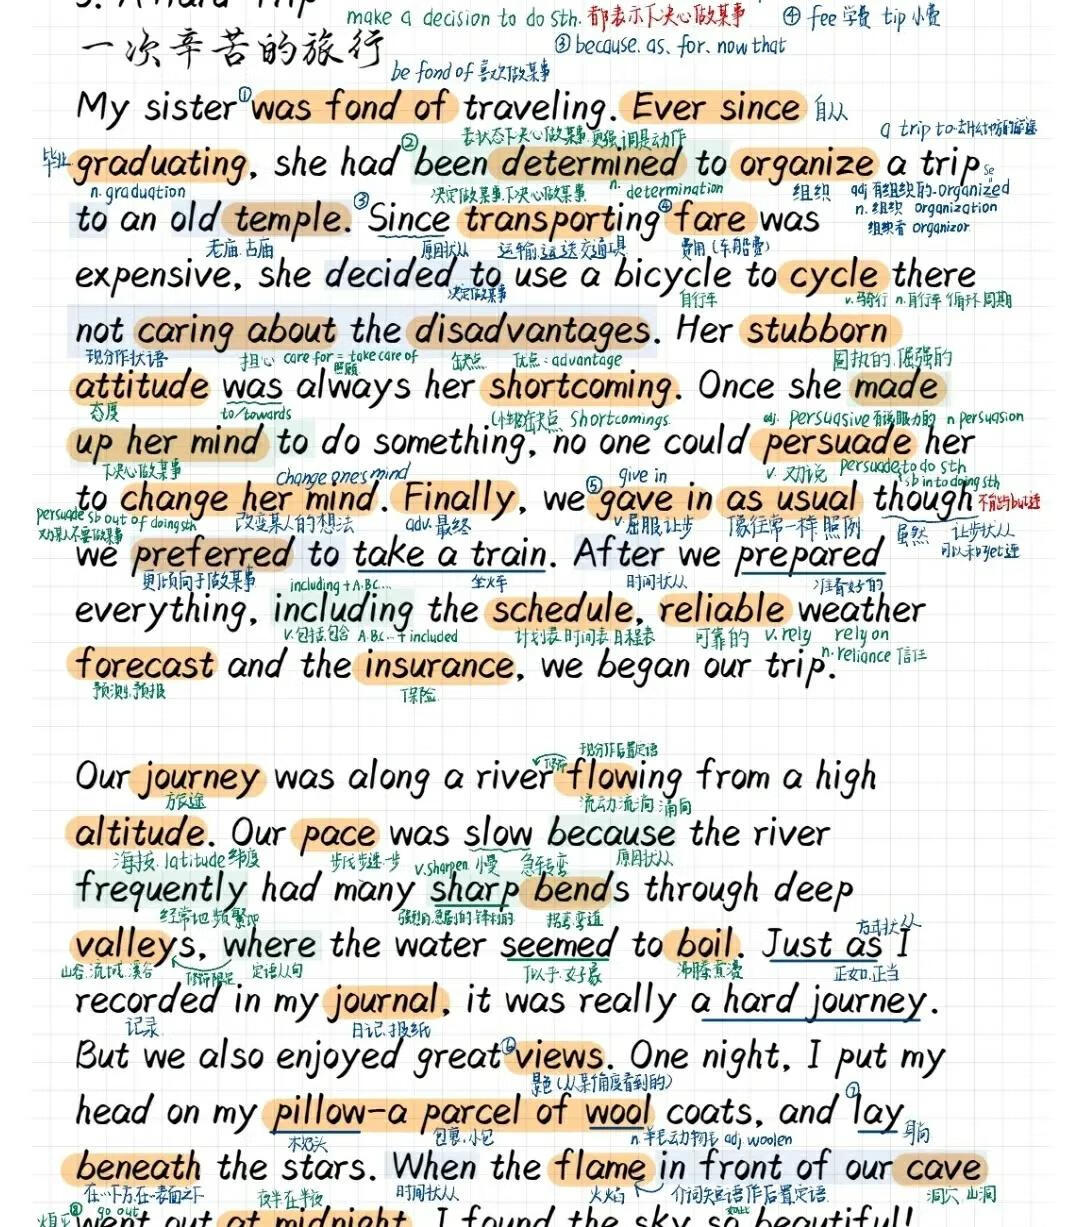 3. A hard Trip
make a decision to do sth. 都表示下决心做某事 ④ fee 学费 tip 小费
一次辛苦的旅行
③ because. as. for. now that
be fond of 喜欢做某事
My sister ①was fond of traveling. Ever since 自从
表状态下决心做某事.更强调是动作 a trip to
毕业 graduating, she had ②been determined to organize a trip
n. graduation 决定做某事.下决心做某事. n. determination 组织 adj 有组织的.organized
n. 组织 organization
to an old temple. ③Since transporting ④fare was
组织者 organizor
古庙 原因状从 运输.运送交通工具 费用(车船费)
expensive, she decided to use a bicycle to cycle there
决定做某事 自行车 v.骑行 n.自行车 循环.周期
not caring about the disadvantages. Her stubborn
现分作状语 担心 care for = take care of 照顾 缺点 优点:advantage 固执的.倔强的
attitude was always her shortcoming. Once she made
态度 to/towards shortcomings adj. persuasive 有说服力的 n persuasion
up her mind to do something, no one could persuade her
下决心做某事 change one's mind give in v. 劝说 persuade to do sth
sb into doing sth
to change her mind. Finally, we ⑤gave in as usual though 不能与but连
persuade sb out of doing sth 改变某人的想法 adv.最终 v.屈服让步 像往常一样 照例 虽然 让步状从
劝某人不要做某事 可以和yet连
we preferred to take a train. After we prepared
更倾向于做某事 including + A.B.C... 坐火车 时间状从 准备好的
everything, including the schedule, reliable weather
v.包括.包含 A.B.C...+ included 计划表.时间表.日程表 可靠的 v. rely rely on
forecast and the insurance, we began our trip.
n. reliance 信任
预测.预报 保险.
现分作后置定语
Our journey was along a river flowing from a high
旅途 修饰 流动.流淌.涌向
altitude. Our pace was slow because the river
海拔. latitude 纬度 v.sharpen 慢 急转弯 原因状从
frequently had many sharp bends through deep
经常地 频繁地 强烈的.急剧的.锋利的 拐弯.弯道
方式状从
valleys, where the water seemed to boil. Just as I
山谷.流域.溪谷 修饰限定 定语从句 似乎.好象 沸腾.煮沸 正如.正当
recorded in my journal, it was really a hard journey.
记录 日记.报纸
But we also enjoyed great ⑥views. One night, I put my
景色(从某角度看到的) ⑦
head on my pillow—a parcel of wool coats, and lay
木枕头 包裹.小包 n.羊毛动物毛 adj. woolen 躺
beneath the stars. When the flame in front of our cave
在...下方 在...表面之下 go out 夜半在半夜 时间状从 火焰 介词短语作后置定语. 洞穴.山洞
⑧went out at midnight, I found the sky so beautiful!